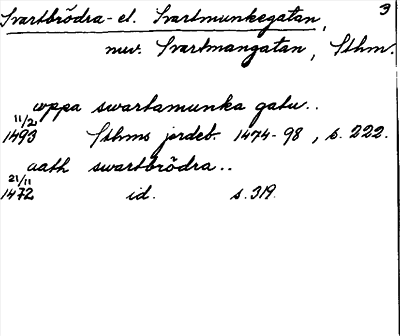 Svartbrödra- el. Svartmunkegatan, 3
nuv. Svartmangatan, Sthm.
uppa swartamunka gatu..
11/2
1493 Sthms jordeb. 1474-98, s. 222.
aath swartbrödra..
21/11
1472 id. s. 319.